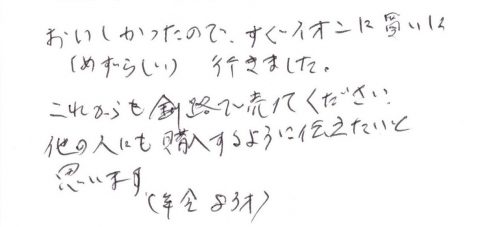 おいしかったので、すぐイオンに買いに
(めずらしい) 行きました。
これからも釧路で売てください
他の人にも購入するように伝えたいと
思います
(年令 83才)